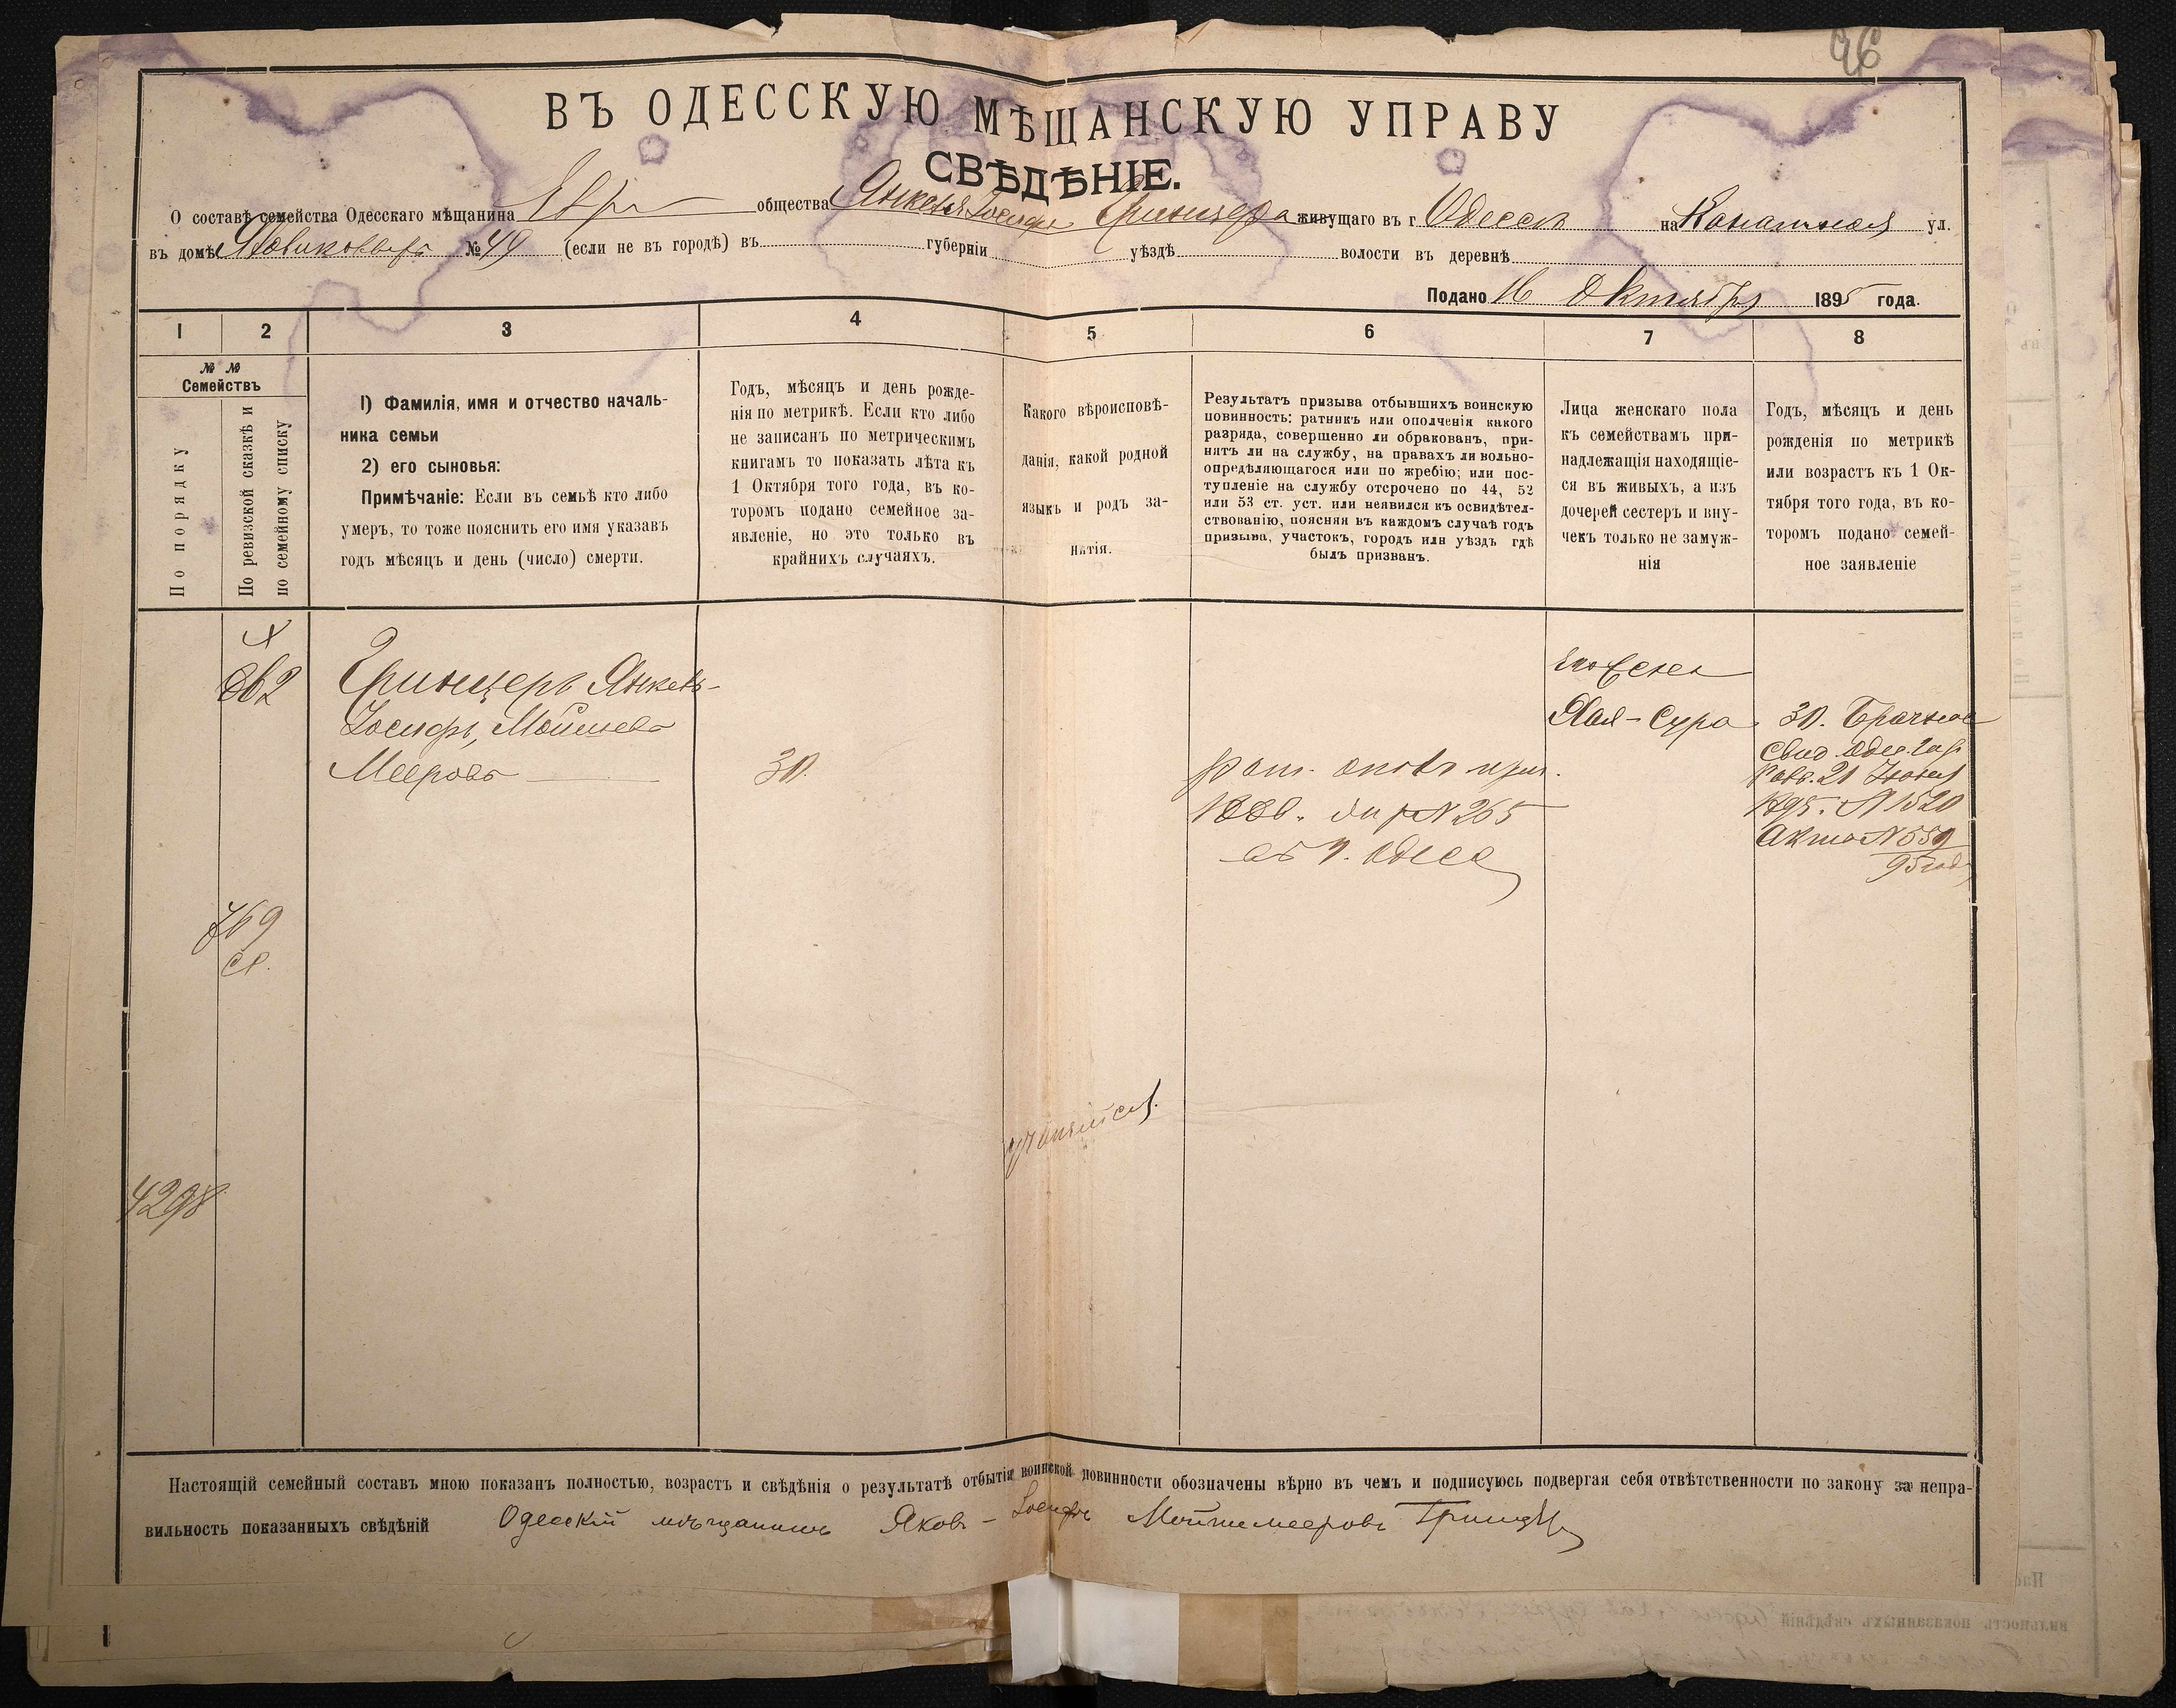 96
ВЪ ОДЕССКУЮ МѢЩАНСКУЮ УПРАВУ
СВѢДѢНІЕ.
О составѣ семейства Одесскаго мѣщанина Евр общества Янкеля Іосифа Гринцера живущаго въ г Одессѣ на Канатной ул.
въ домѣ №49 (если не въ городѣ) въ губерніи уѣздѣ волости въ деревнѣ
Подано 16 Октября 1895 года.
1 2 3 4 5 6 7 8
№ №
Семействъ
По порядку
По ревизской сказкѣ и
по семейному списку
1) Фамилія, имя и отчество началь-
ника семьи
2) его сыновья:
Примѣчаніе: Если въ семьѣ кто либо
умеръ, то тоже пояснить его имя указавъ
годъ мѣсяцъ и день (число) смерти.
Годъ, мѣсяцъ и день рожде-
нія по метрикѣ. Если кто либо
не записанъ по метрическимъ
книгамъ то показать лѣта къ
1 Октября того года, въ ко-
торомъ подано семейное за-
явленіе, но это только въ
крайнихъ случаяхъ.
Какого вѣроисповѣ-
данія, какой родной
языкъ и родъ за-
нятія.
Результатъ призыва отбывшихъ воинскую
повинность: ратникъ или ополченія какого
разряда, совершенно ли обракованъ, при-
нятъ ли на службу, на правахъ ли вольно-
опредѣляющагося или по жребію; или пос-
тупленіе на службу отсрочено по 44, 52
или 53 ст. уст. или неявился къ освидѣтел-
ствованію, поясняя въ каждомъ случаѣ годъ
призыва, участокъ, городъ или уѣздъ гдѣ
былъ призванъ.
Лица женскаго пола
къ семействамъ при-
надлежащія находящіе-
ся въ живыхъ, а изъ
дочерей сестеръ и вну-
чекъ только не замуж-
нія
Годъ, мѣсяцъ и день
рожденія по метрикѣ
или возрастъ къ 1 Ок-
тября того года, въ ко-
торомъ подано семей-
ное заявленіе
862
Гринцеръ Янкель-
Іосифъ, Мойшевъ
Мееровъ
30.
рат. опол. приз.
1886. №265
Одесс
его жена
Хая-Сура
30. Брачное
Свид. Одес. гор
Равв. 21 Іюня
1895. №1520
Актъ №559
95 год
769
сп.
4298
Настоящій семейный составъ мною показанъ полностью, возрастъ и свѣдѣнія о результатѣ отбытія воинской повинности обозначены вѣрно въ чемъ и подписуюсь подвергая себя отвѣтственности по закону за непра-
вильность показанныхъ свѣдѣній Одесскій мѣщанинъ Яковъ-Іосифъ Мойшемееровъ Гринцеръ